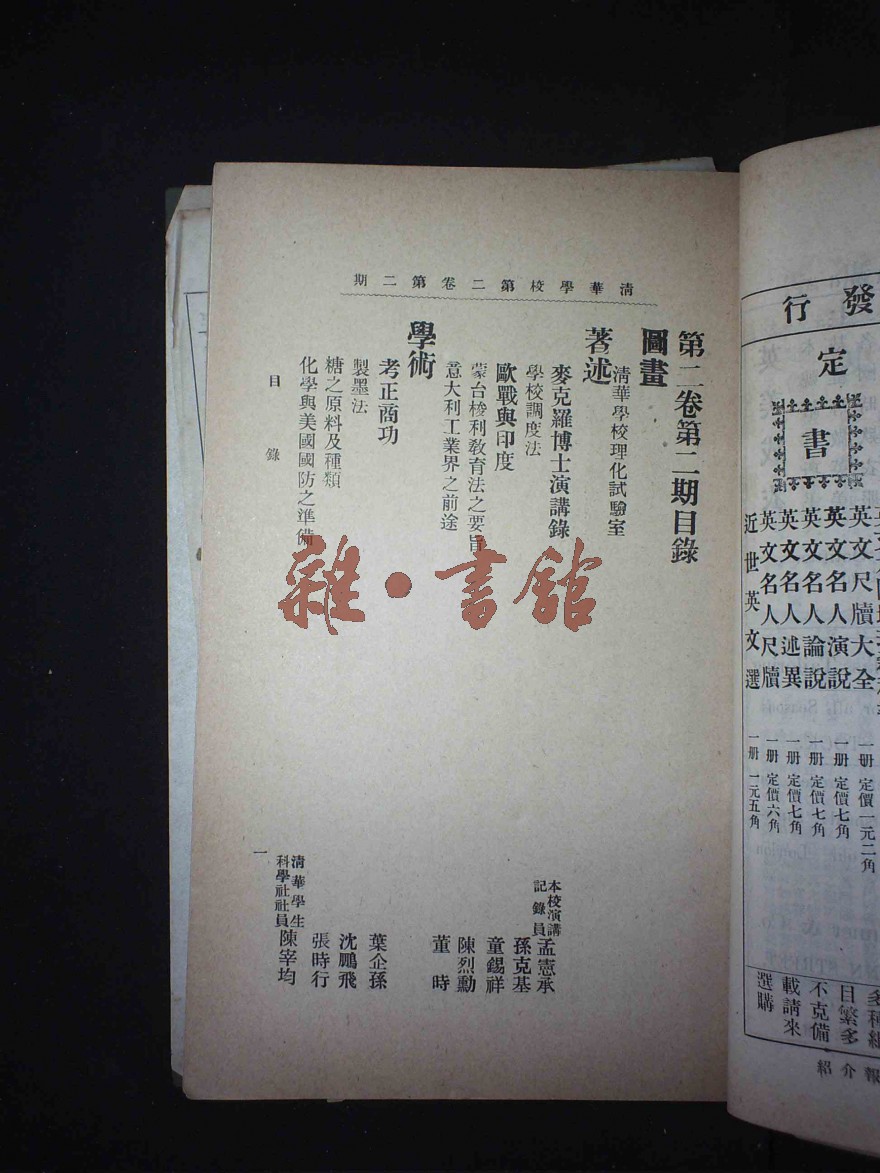 清華學校第二卷第二期
第二卷第二期目錄
圖畫
清華學校理化試驗室
著述
麥克羅博士演講錄 本校演講記錄員 孟憲承
學校調度法 孫克基
歐戰與印度 童錫祥
蒙台梭利教育法之要旨 陳烈勳
意大利工業界之前途 董時
學術
考正商功 葉企孫
製墨法 沈鵬飛
糖之原料及種類 張時行
化學與美國國防之準備 清華學生科學社社員 陳宰均
目錄
一
雜·書館
發行
定
書
英文尺牘大全 一册 定價一元二角
英文名人演說 一册 定價七角
英文名人論說 一册 定價七角
英文名人述異 一册 定價七角
英文名人尺牘 一册 定價六角
近世英文選 一册 一元五角
目繁多
不克備
載請來
選購
報介紹